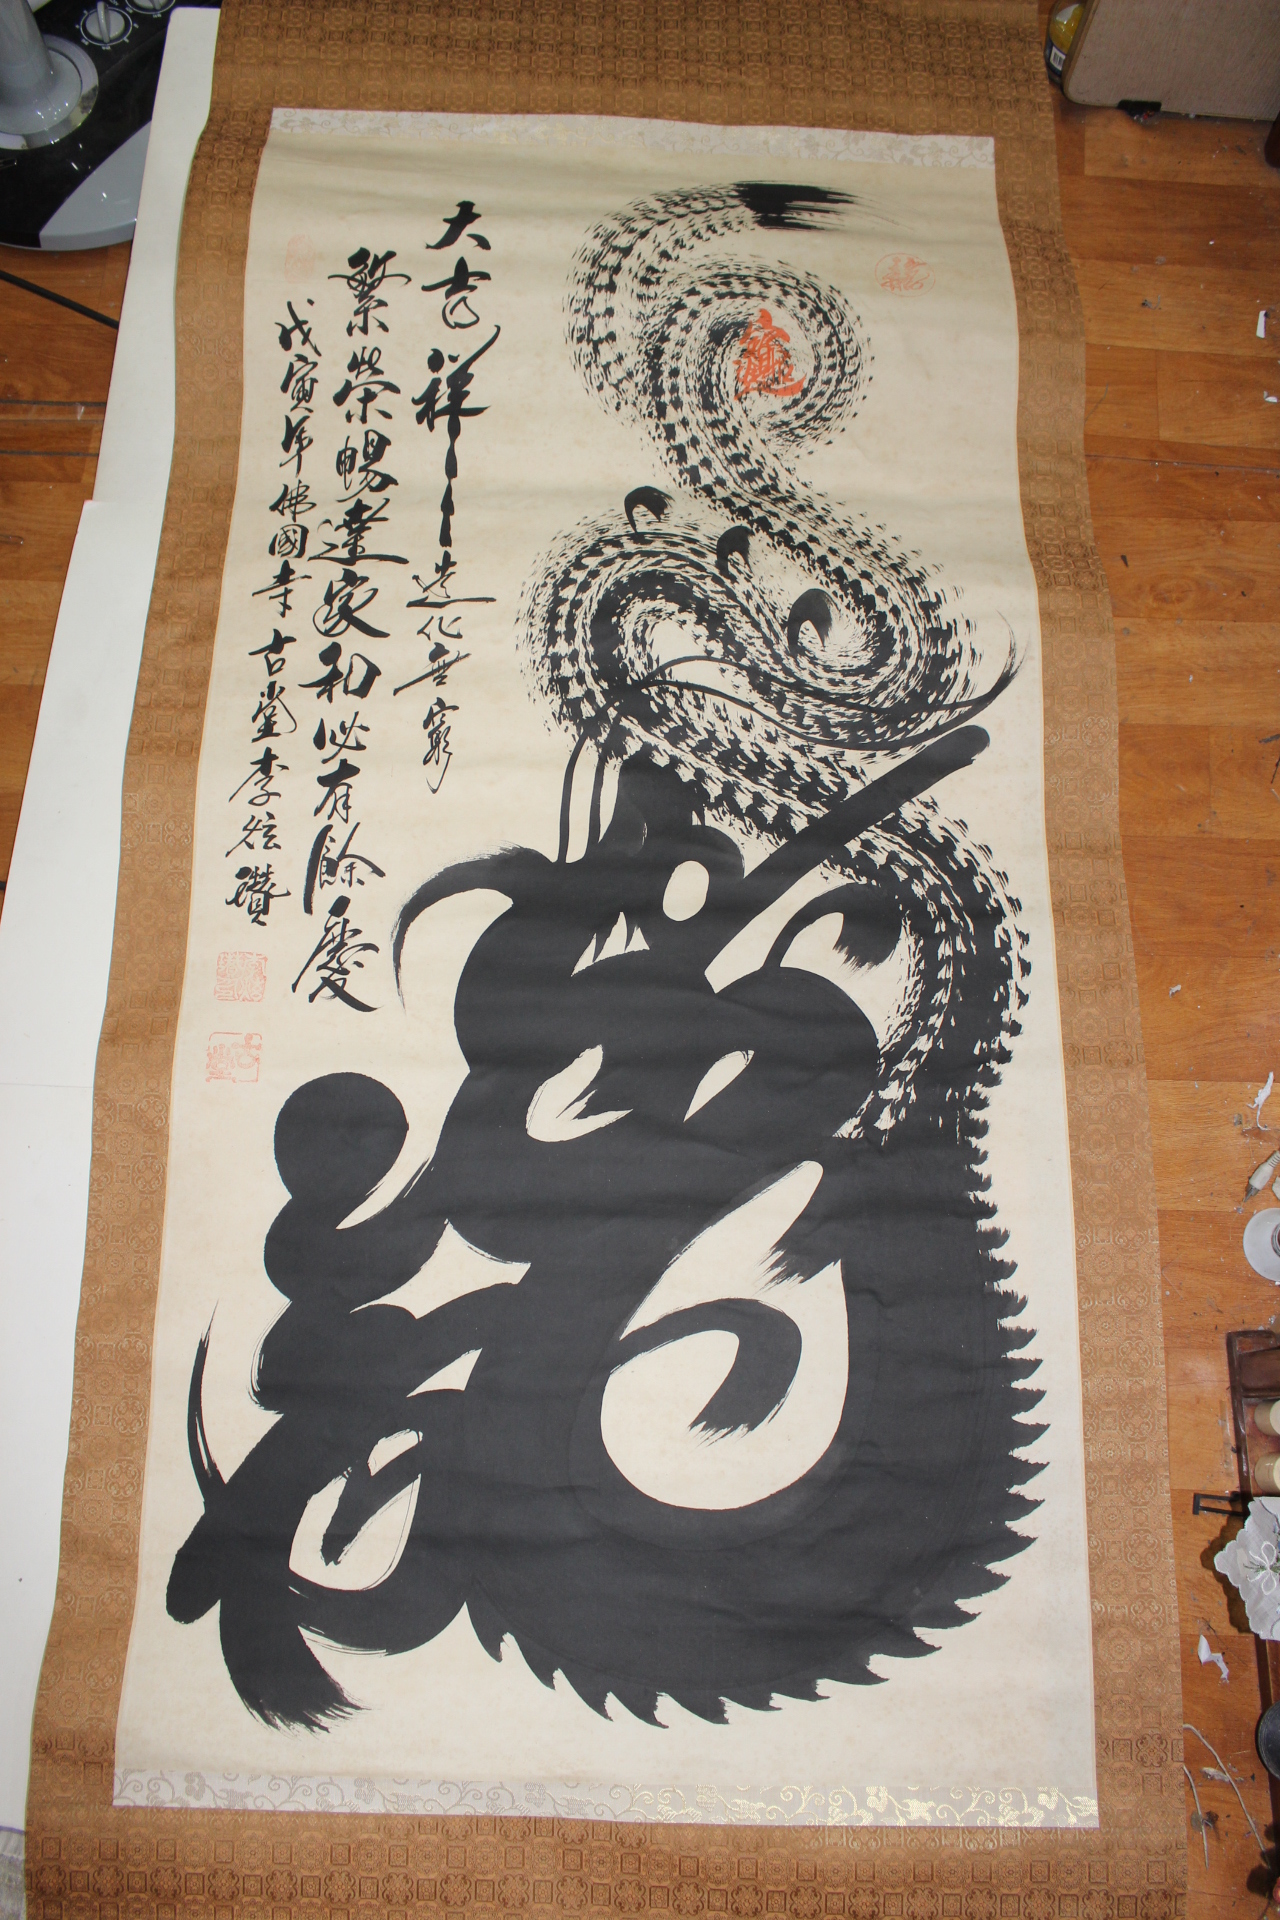 龍
大吉祥造化無窮
繁榮暢達家和必有餘慶
戊寅年佛國寺古堂李炫瓚
古堂